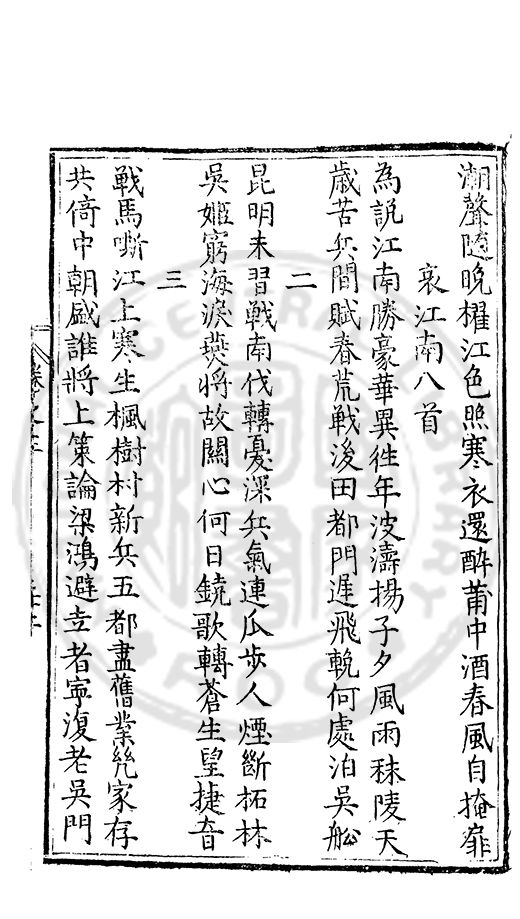 潮聲隨晚櫂江色照寒衣還酔莆中酒春風自掩扉
哀江南八首
為說江南勝豪華異徃年波濤揚子夕風雨秣陵天
歲苦兵間賦春荒戰後田都門遲飛輓何處泊吳船
二
昆明未習戰南伐轉憂深兵氣連瓜步人煙斷柘林
吳姬窮海淚燕將故關心何日鐃歌轉蒼生望捷音
三
戰馬嘶江上寒生楓樹村新兵五都盡舊業幾家存
共倚中朝盛誰將上策論梁鴻避世者寧復老吳門
卷之